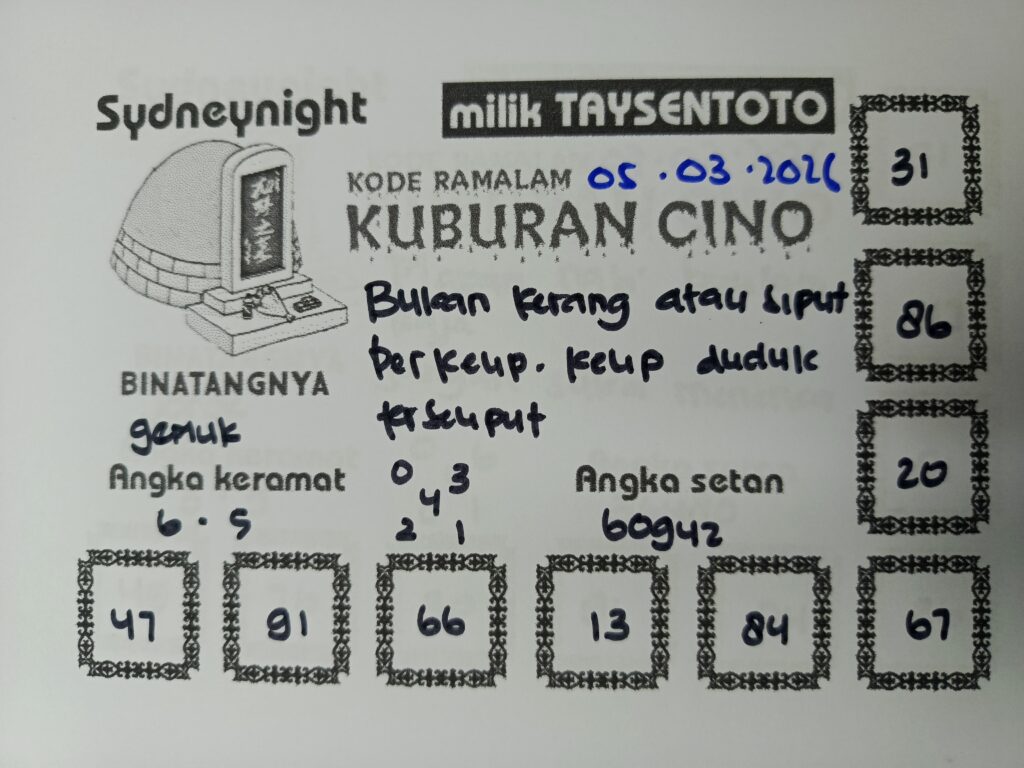 Sydneynight
milik TAYSENTOTO
KODE RAMALAM 05.03.2026
KUBURAN CINO
Bukan kerang atau siput
berkelip. kelip duduk
terseliput
BINATANGNYA
gemuk
Angka keramat
6.5
0 3
4
2 1
Angka setan
60942
31
86
20
47 91 66 13 84 67